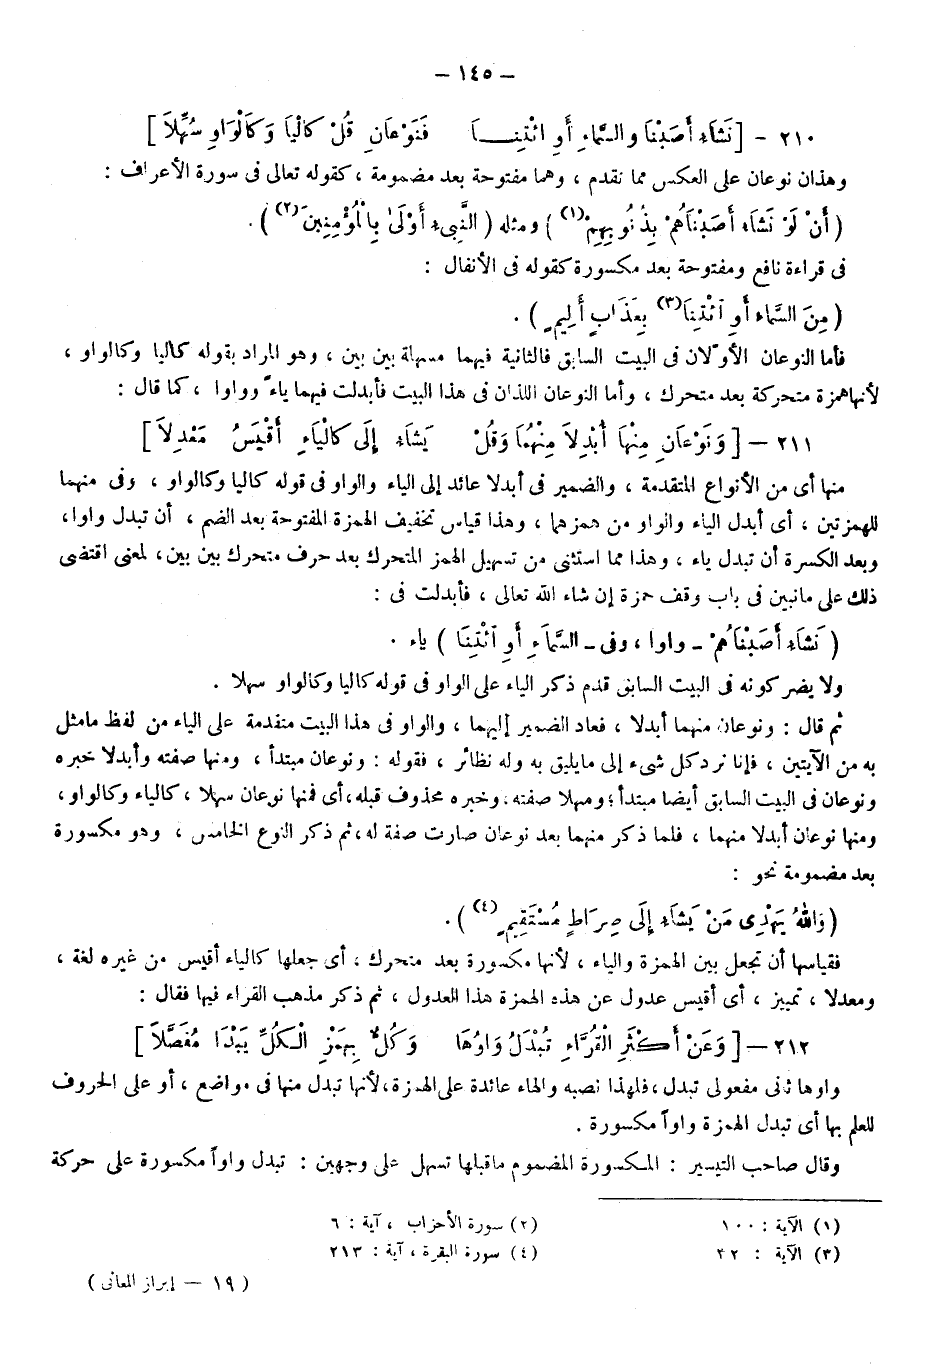 – ١٤٥ –
٢١٠ – [نَشَاءُ أَصَبْنَا والسَّمَاءِ أَوِ ائْتِنَـــا فَنَوْعَانِ قُلْ كَالْيَا وَكَالْوَاوِ سُهِّلاَ]
وهذان نوعان على العكس مما تقدم ، وهما مفتوحة بعد مضمومة ، كقوله تعالى فى سورة الأعراف :
(أَنْ لَوْ نَشَاءُ أَصَبْنَاهُمْ بِذُنُوبِهِمْ(١)) ومثله (النَّبِىءُ أَوْلَىٰ بِالْمُؤْمِنِينَ(٢)) .
فى قراءة نافع ومفتوحة بعد مكسورة كقوله فى الأنفال :
(مِنَ السَّمَاءِ أَوِ ائْتِنَا(٣) بِعَذَابٍ أَلِيمٍ) .
فأما النوعان الأوّلان فى البيت السابق فالثانية فيهما مسهلة بين بين ، وهو المراد بقوله كاليا وكالواو ،
لأنها همزة متحركة بعد متحرك ، وأما النوعان اللذان فى هذا البيت فأبدلت فيهما ياءً وواوا ، كما قال :
٢١١ – [وَنَوْعَانِ مِنْهَا أُبْدِلاَ مِنْهُمَا وَقُلْ يَشَاءُ إِلَى كَالْيَاءِ أَقْيَسُ مَعْدِلاَ]
منها أى من الأنواع المتقدمة ، والضمير فى أبدلا عائد إلى الياء والواو فى قوله كاليا وكالواو ، وفى منهما
للهمزتين ، أى أبدل الياء والواو من همزهما ، وهذا قياس تخفيف الهمزة المفتوحة بعد الضم ، أن تبدل واوا ،
وبعد الكسرة أن تبدل ياء ، وهذا مما استثنى من تسهيل الهمز المتحرك بعد حرف متحرك بين بين ، لمعنى اقتضى
ذلك على مانبين فى باب وقف حمزة إن شاء الله تعالى ، فأبدلت فى :
(نَشَاءُ أَصَبْنَاهُمْ – واوا ، وفى – السَّمَاءِ أَوِ ائْتِنَا) ياء .
ولا يضر كونه فى البيت السابق قدم ذكر الياء على الواو فى قوله كاليا وكالواو سهلا .
ثم قال : ونوعان منهما أبدلا ، فعاد الضمير إليهما ، والواو فى هذا البيت متقدمة على الياء من لفظ مامثل
به من الآيتين ، فإنا نرد كل شىء إلى مايليق به وله نظائر ، فقوله : ونوعان مبتدأ ، ومنها صفته وأبدلا خبره
ونوعان فى البيت السابق أيضا مبتدأ ؛ وسهلا صفته ، وخبره محذوف قبله ، أى فمنها نوعان سهلا ، كالياء وكالواو ،
ومنها نوعان أبدلا منهما ، فلما ذكر منهما بعد نوعان صارت صفة له ، ثم ذكر النوع الخامس ، وهو مكسورة
بعد مضمومة نحو :
(وَاللهُ يَهْدِى مَنْ يَشَاءُ إِلَى صِرَاطٍ مُسْتَقِيمٍ(٤)) .
فقياسها أن تجعل بين الهمزة والياء ، لأنها مكسورة بعد متحرك ، أى جعلها كالياء أقيس من غيره لغة ،
ومعدلا ، تمييز ، أى أقيس عدول عن هذه الهمزة هذا العدول ، ثم ذكر مذهب القراء فيها فقال :
٢١٢ – [وَعَنْ أَكْثَرِ الْقُرَّاءِ تُبْدَلُ وَاوُهَا وَكُلٌّ بِهَمْزِ الْكُلِّ يَبْدَا مُفَصَّلاَ]
واوها ثانى مفعولى تبدل ، فلهذا نصبه والهاء عائدة على الهمزة ، لأنها تبدل منها فى مواضع ، أو على الحروف
للعلم بها أى تبدل الهمزة واواً مكسورة .
وقال صاحب التيسير : المكسورة المضموم ماقبلها تسهل على وجهين : تبدل واواً مكسورة على حركة
(١) الآية : ١٠٠ (٢) سورة الأحزاب ، آية : ٦
(٣) الآية : ٣٢ (٤) سورة البقرة ، آية : ٢١٣
(١٩ – إبراز المعانى)